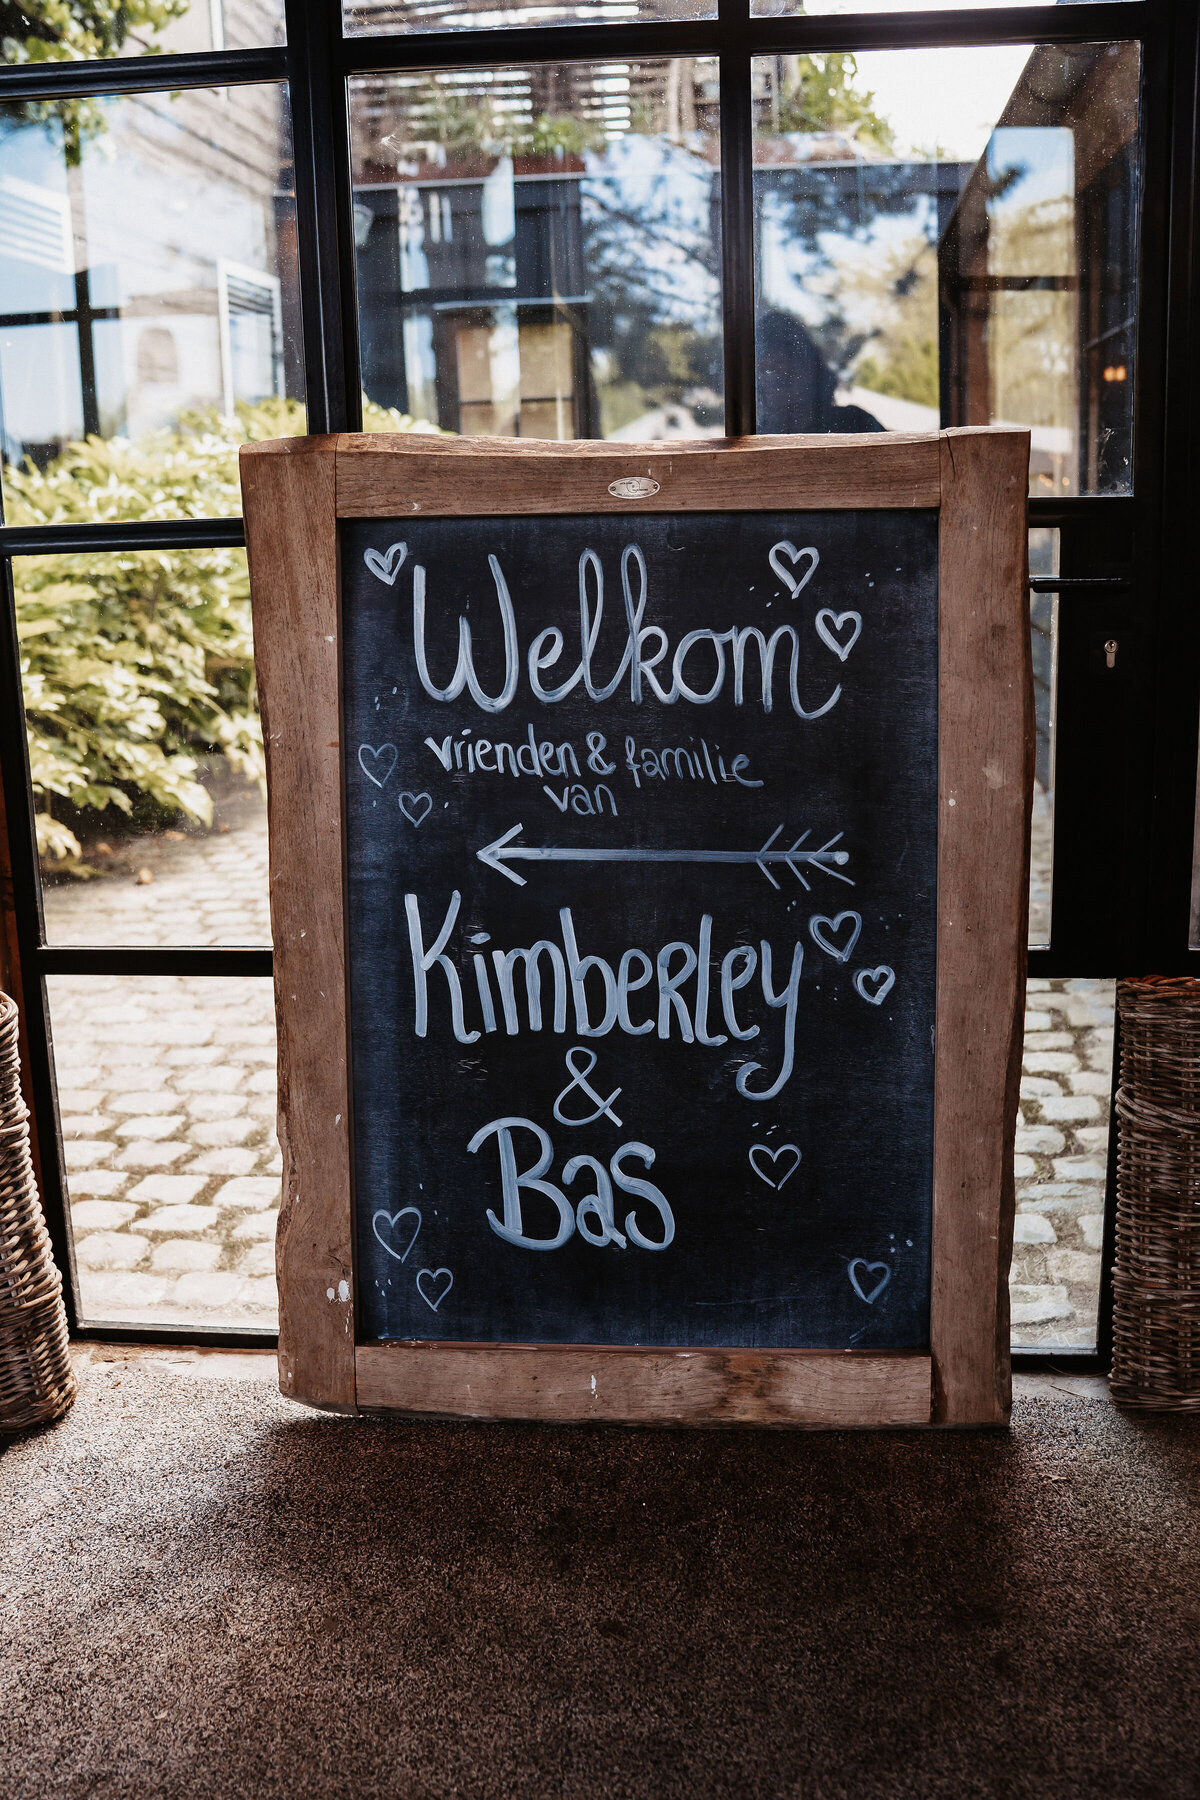 Welkom
vrienden & familie
van
Kimberley
&
Bas